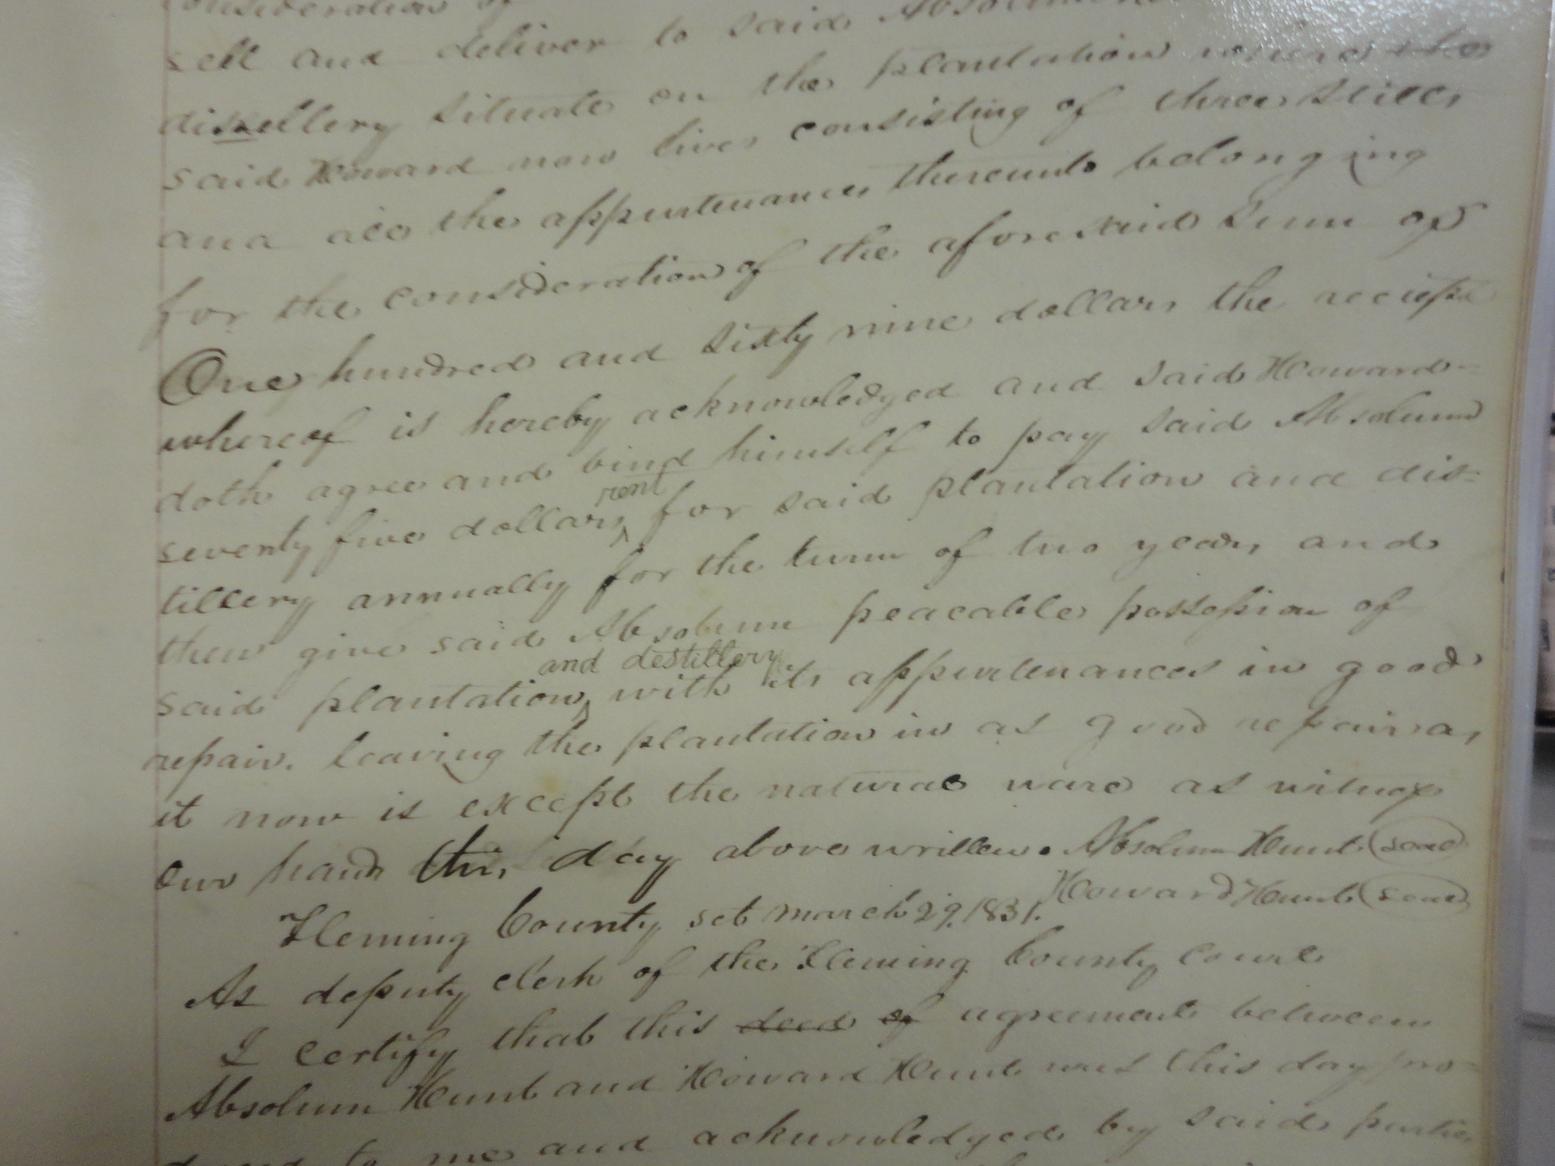 consideration of
sell and deliver to said Absolum
distellery situate on the plantation where the
said Howard now lives consisting of three stills
and all the appurtenances thereunto belonging
for the consideration of the aforesaid sum of
One hundred and sixty nine dollars the reciept
whereof is hereby acknowledged and said Howard
doth agree and bind himself to pay said Absolum
seventy five dollars rent for said plantation and dis=
tillery annually for the turm of two years and
then give said Absolum peacable possession of
said plantation and destillery with its appurtenances in good
repair. leaving the plantation in as good repair as
it now is except the natural ware as witness
our hands this day above written. Absolum Hunt (seal)
Howard Hunt (seal)
Fleming County set march 29, 1831.
As deputy clerk of the Fleming County Court
I certify that this deed of agreement between
Absolum Hunt and Howard Hunt was this day pro=
duced to me and acknowledged by said parties